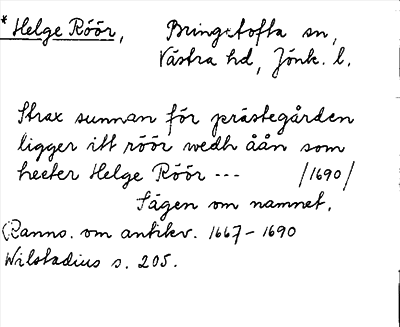 * Helge Röör, Bringetofta sn,
Västra hd, Jönk. l.
Strax sunnan för prästegården
ligger itt röör wedh åån som
heeter Helge Röör --- /1690/
Sägen om namnet.
Ranns. om antikv. 1667-1690
Wilstadius s. 205.